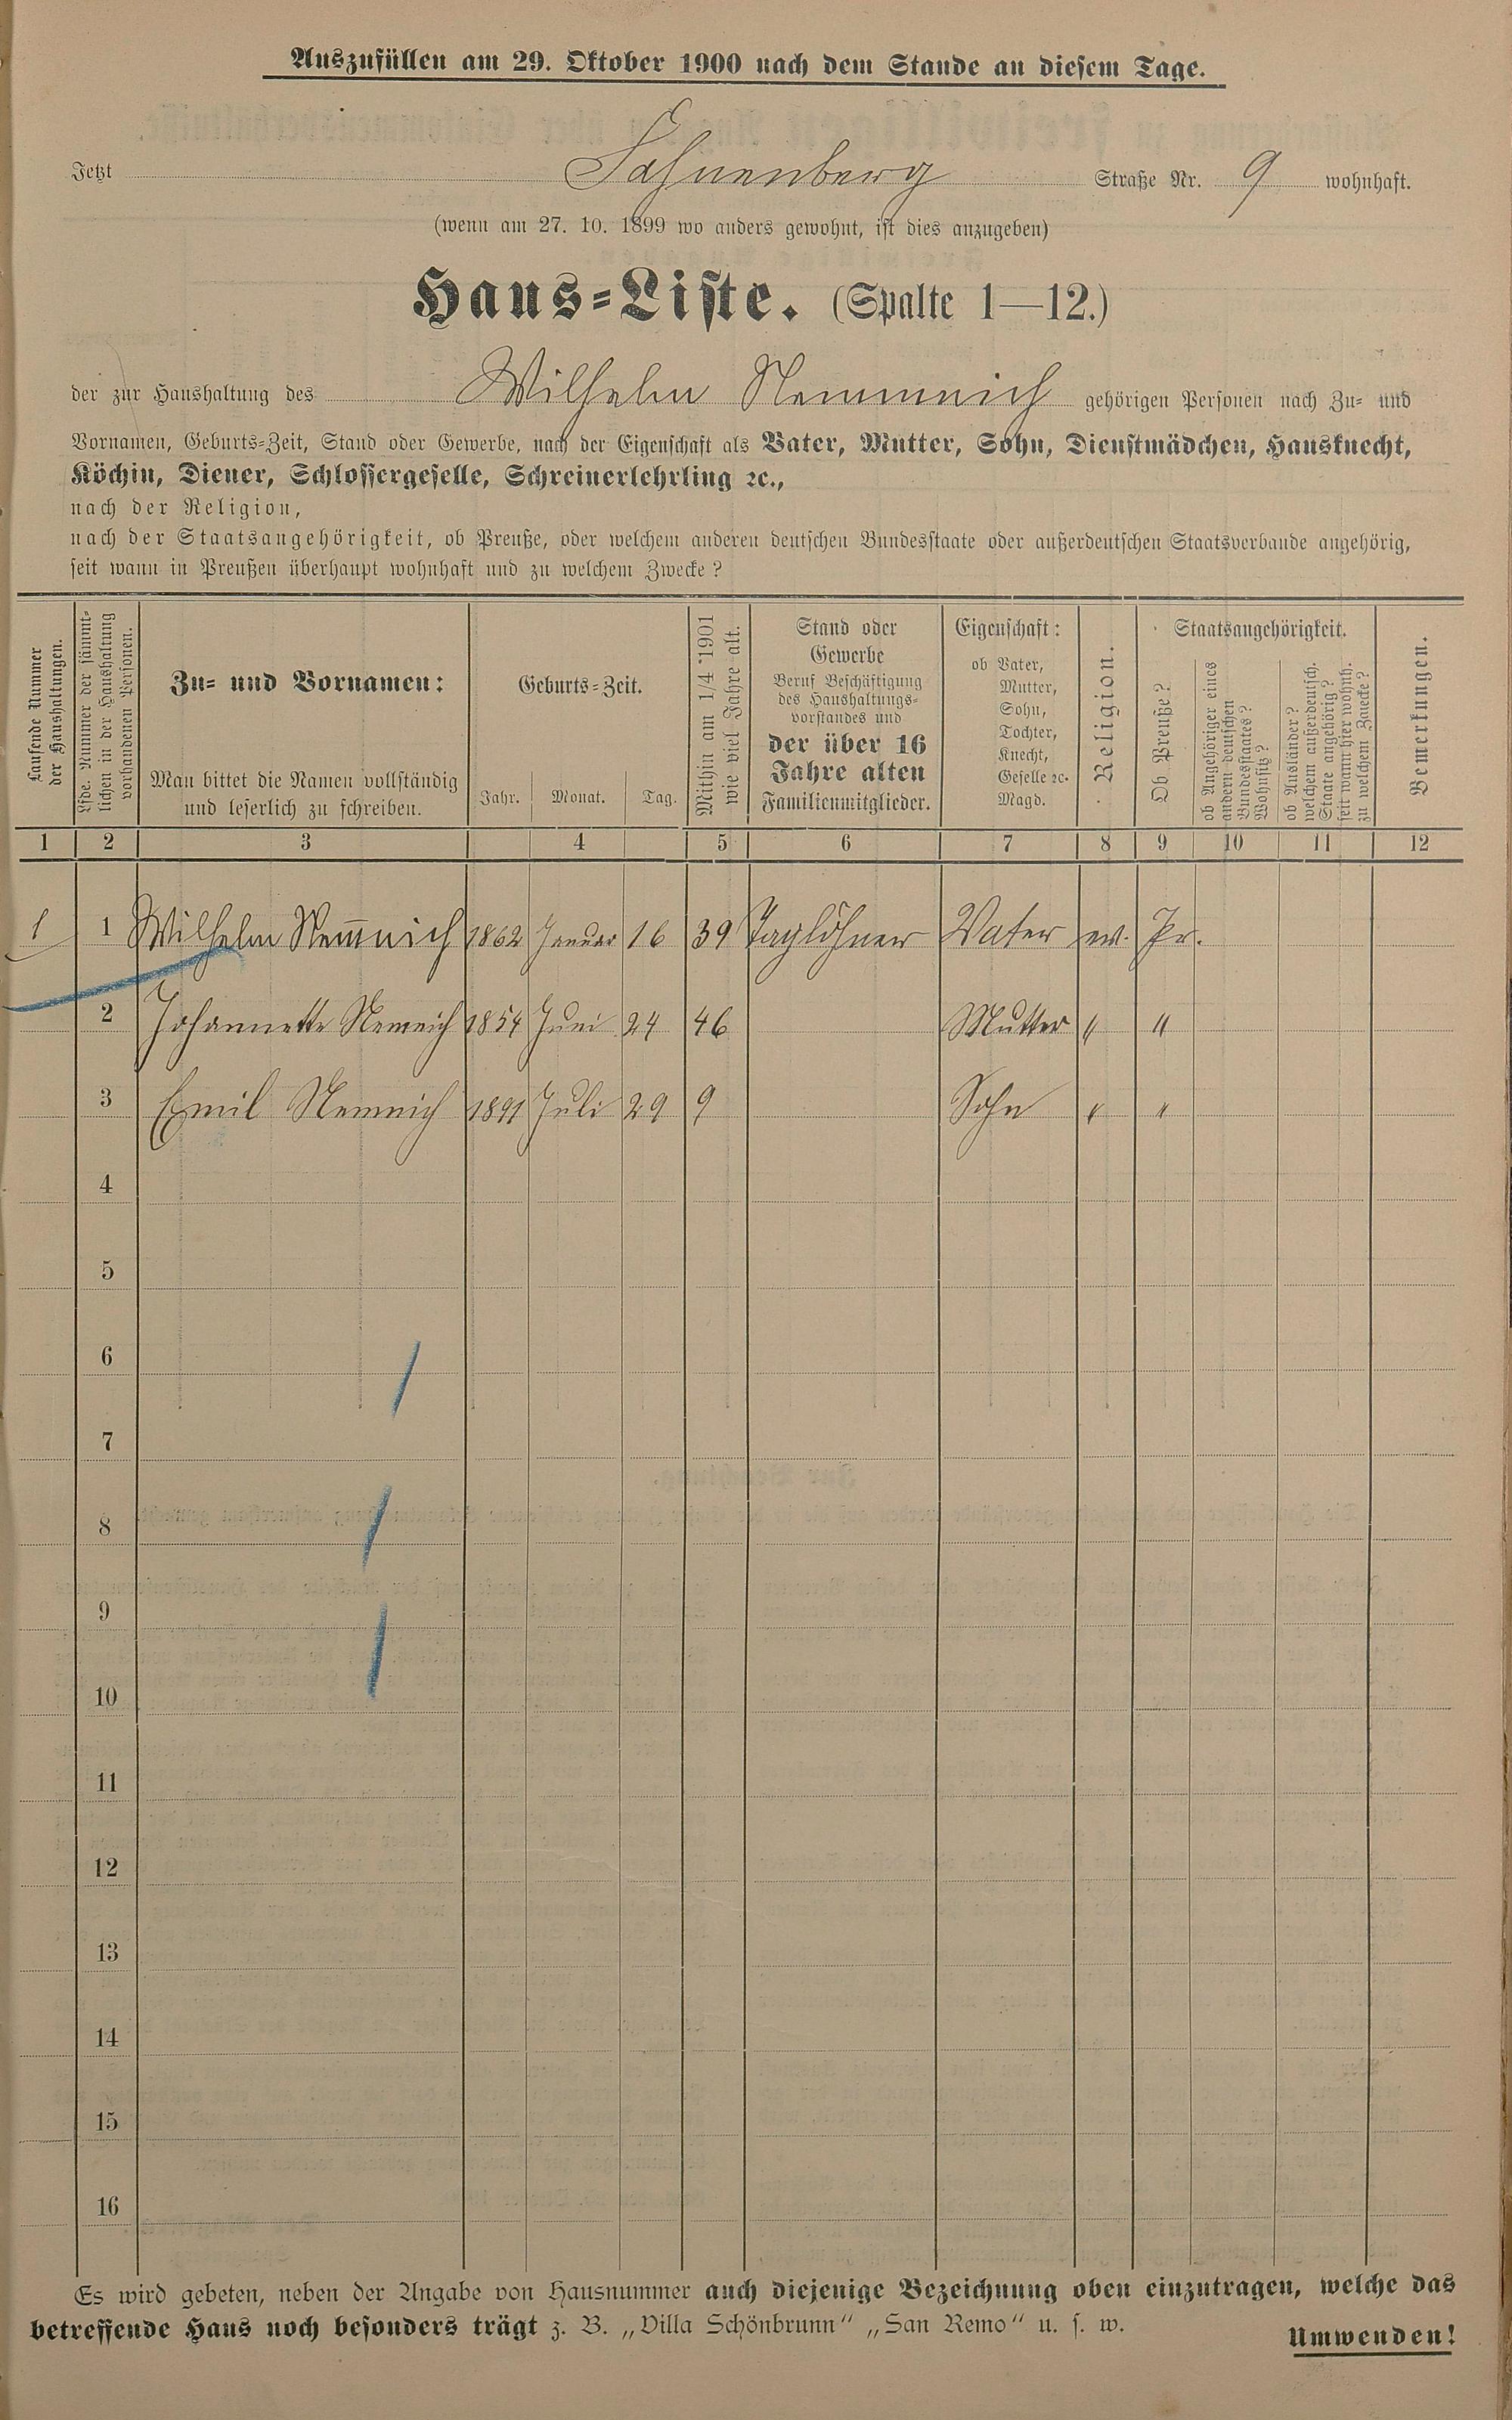 Auszufüllen am 29. Oktober 1900 nach dem Stande an diesem Tage.
Jetzt Sahnenberg Straße Nr. 9 wohnhaft.
(wenn am 27. 10. 1899 wo anders gewohnt, ist dies anzugeben)
Haus-Liste. (Spalte 1—12.)
der zur Haushaltung des Wilhelm Nemmnich gehörigen Personen nach Zu- und
Vornamen, Geburts-Zeit, Stand oder Gewerbe, nach der Eigenschaft als Vater, Mutter, Sohn, Dienstmädchen, Hausknecht,
Köchin, Diener, Schlossergeselle, Schreinerlehrling ꝛc.,
nach der Religion,
nach der Staatsangehörigkeit, ob Preuße, oder welchem anderen deutschen Bundesstaate oder außerdeutschen Staatsverbande angehörig,
seit wann in Preußen überhaupt wohnhaft und zu welchem Zwecke?
Laufende Nummer
der Haushaltungen.
Lfde. Nummer der sämmt-
lichen in der Haushaltung
vorhandenen Personen.
Zu- und Vornamen:
Man bittet die Namen vollständig
und leserlich zu schreiben.
Geburts-Zeit.
Jahr. Monat. Tag.
Mithin am 1/4 1901
wie viel Jahre alt.
Stand oder
Gewerbe
Beruf Beschäftigung
des Haushaltungs-
vorstandes und
der über 16
Jahre alten
Familienmitglieder.
Eigenschaft:
ob Vater,
Mutter,
Sohn,
Tochter,
Knecht,
Geselle ꝛc.
Magd.
Religion.
Staatsangehörigkeit.
Ob Preuße?
ob Angehöriger eines
andern deutschen
Bundesstaates?
Wohnsitz?
ob Ausländer?
welchem außerdeutsch.
Staate angehörig?
seit wann hier wohnh.
zu welchem Zwecke?
Bemerkungen.
1 2 3 4 5 6 7 8 9 10 11 12
1 1 Wilhelm Nem̅nich 1862 Januar 16 39 Taglöhner Vater ev. Pr.
2 Johannette Nemnich 1854 Juni 24 46 Mutter " "
3 Emil Nemnich 1891 Juli 29 9 Sohn " "
4
5
6
7
8
9
10
11
12
13
14
15
16
Es wird gebeten, neben der Angabe von Hausnummer auch diejenige Bezeichnung oben einzutragen, welche das
betreffende Haus noch besonders trägt z. B. „Villa Schönbrunn" „San Remo" u. s. w.
Umwenden!